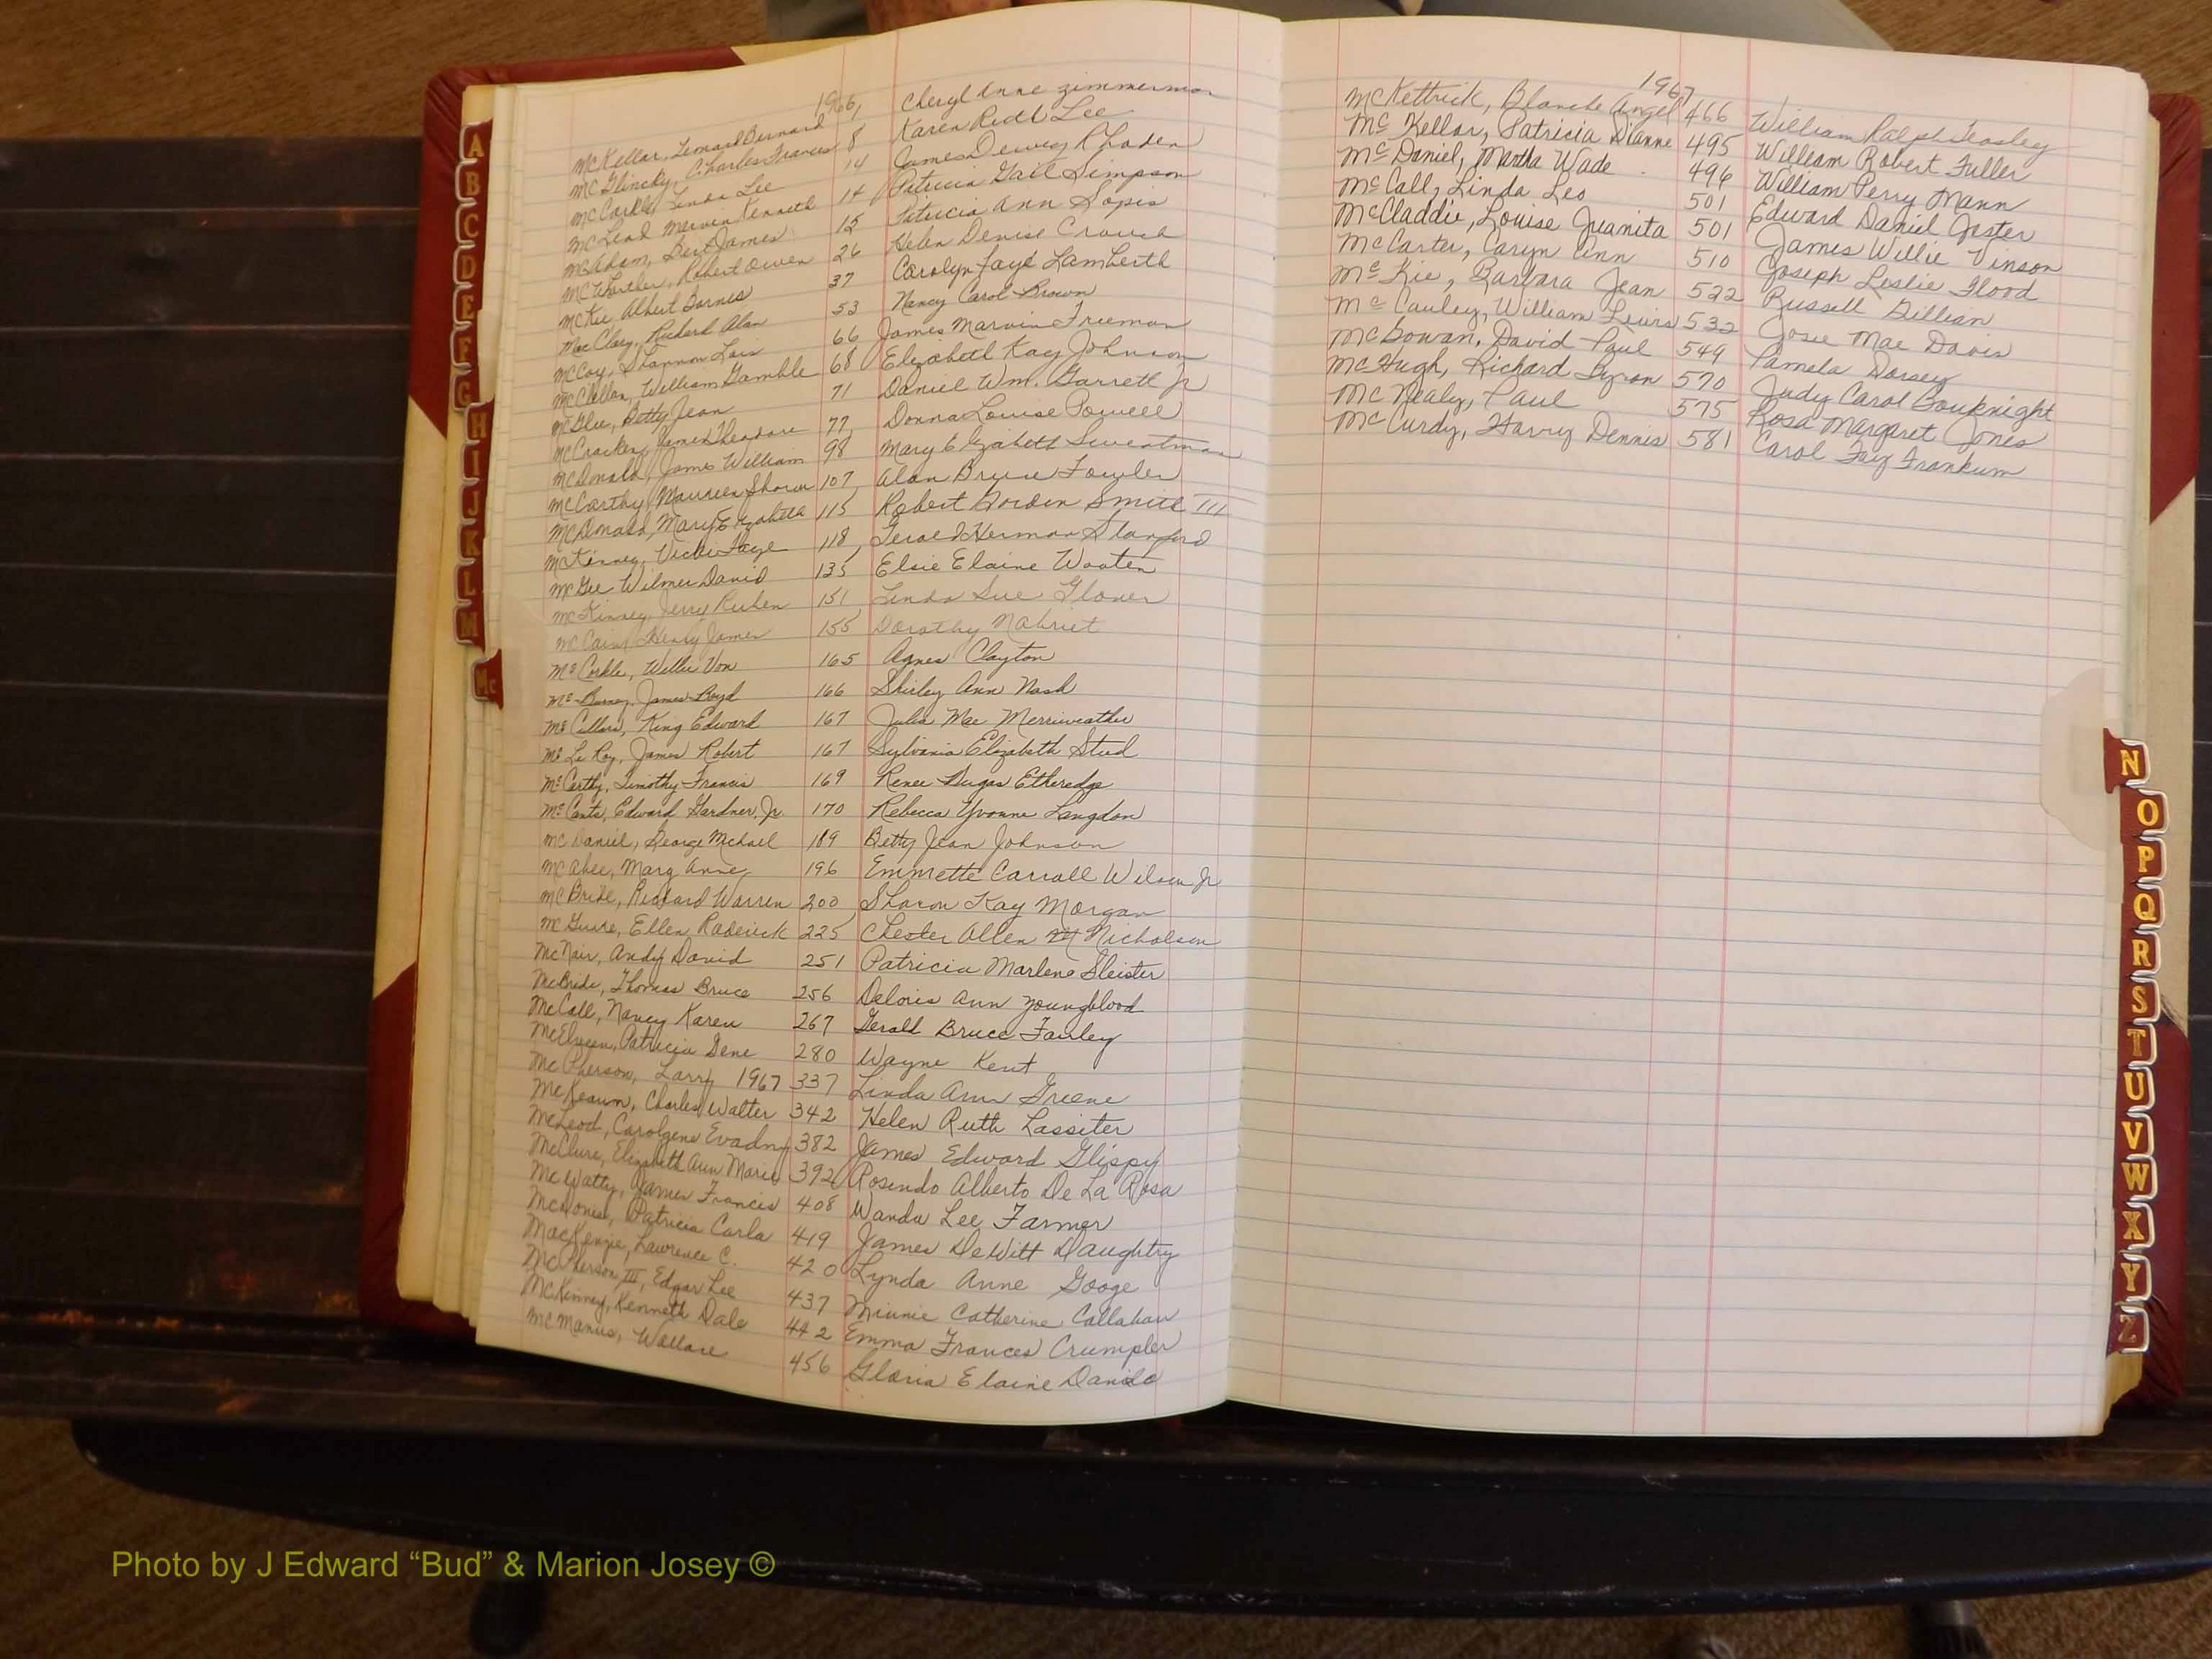 1966
McKellar, Lenard Bernard 8 Cheryl Anne Zimmerman
McGlincky, Charles Francis 14 Karen Ruth Lee
McCorkle, Linda Lee 14 James Dewey Rhoden
McLeod Marvin Kenneth 15 Patricia Gail Simpson
McAdam, Bert James 26 Patricia Ann Sopis
McWhorter, Robert Owen 37 Helen Denise Crouch
McKie, Albert Barnes 53 Carolyn Faye Lamberth
MacClary, Richard Alan 66 Nancy Carol Brown
McCoy, Shannon Lois 68 James Marvin Freeman
McClellan, William Gamble 71 Elizabeth Kay Johnson
McGlee, Betty Jean 77 Daniel Wm. Garrett Jr
McCracken, James Theodore 98 Donna Louise Powell
McDonald, James William 107 Mary Elizabeth Sweatman
McCarthy, Maureen Sharon 115 Alan Bruce Fowler
McDonald, Mary Elizabeth 118 Robert Gordon Smith III
McKinney, Vickie Faye 135 Herman Stanford
McGee Wilmer David 151 Elsie Elaine Wooten
McKinney, Jerry Reuben 155 Linda Sue Glover
McCain, Henry James Dorothy
McCorkle, Willie Von 165 Agnes Clayton
Mc-Burney, James Boyd 166 Shirley Ann Nash
McCullars, King Edward 167 Julia Mae Merriweather
McLeRoy, James Robert 167 Sylvania Elizabeth Stud
McCarthy, Timothy Francis 169 Renee Dugas Etheredge
McCants, Edward Gardner, Jr. 170 Rebecca Yvonne Langdon
McDaniel, George Michael 189 Betty Jean Johnson
McAbee, Mary Anne 196 Emmette Carroll Wilson Jr
McBride, Richard Warren 200 Sharon Kay Morgan
McGuire, Ellen Roderick 225 Chester Allen Nicholson
McNair, Andy David 251 Patricia Marlene Sleister
McBride, Thomas Bruce 256 Deloris Ann Youngblood
McCall, Nancy Karen 267 Gerald Bruce Fanley
McElveen, Patricia Gene 280 Wayne Kent
McPherson, Larry 1967 337 Linda Ann Greene
McKeown, Charles Walter 342 Helen Ruth Lassiter
McLeod, Carolgene Evadny 382 James Edward Glispy
McClure, Elizabeth Ann Marie 392 Rosendo Alberto De La Rosa
McWatty, James Francis 408 Wanda Lee Farmer
Patricia Carla 419 James DeWitt Daughtry
MacKenzie, Lawrence C. 420 Lynda Anne Googe
McPherson III, Edgar Lee 437 Minnie Catherine Callahan
McKinney, Kenneth Dale 442 Emma Frances Crumpler
McManus, Wallace 456 Gloria Elaine
1967
McKettrick, Blanche Angel 466 William Ralph Teasley
McKellar, Patricia Dianne 495 William Robert Fuller
McDaniel, Martha Wade 496 William Perry Mann
McCall, Linda Leo 501 Edward Daniel Jaster
McCladdie, Louise Juanita 501 James Willie Vinson
McCarter, Caryn Ann 510 Joseph Leslie Flood
McKie, Barbara Jean 522 Russell Gillian
McCauley, William Lewis 532 Josie Mae Davis
McGowan, David Paul 549 Pamela Dorsey
McHugh, Richard Tyron 570 Judy Carol Bouknight
McNealy, Paul 575 Rosa Margaret Jones
McCurdy, Harry Dennis 581 Carol Fay Frankum
A
B
C
D
E
F
G
H
I
J
K
L
M
Mc
N
O
P
Q
R
S
T
U
V
W
X
Y
Z
Photo by J Edward “Bud” & Marion Josey ©